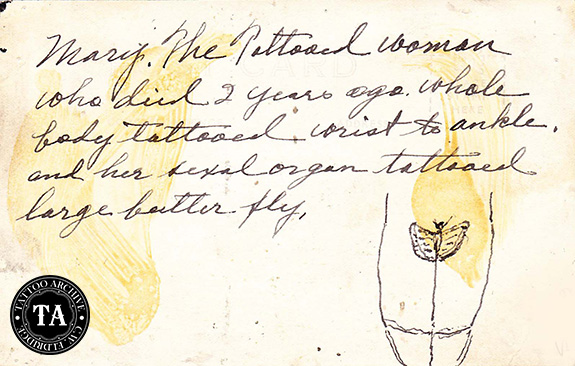 Mary. The Tattooed woman
who died 2 years ago. whole
body tattooed wrist to ankle.
and her sexal organ tattooed
large butter fly,
TATTOO ARCHIVE
TA
C.W. ELDRIDGE